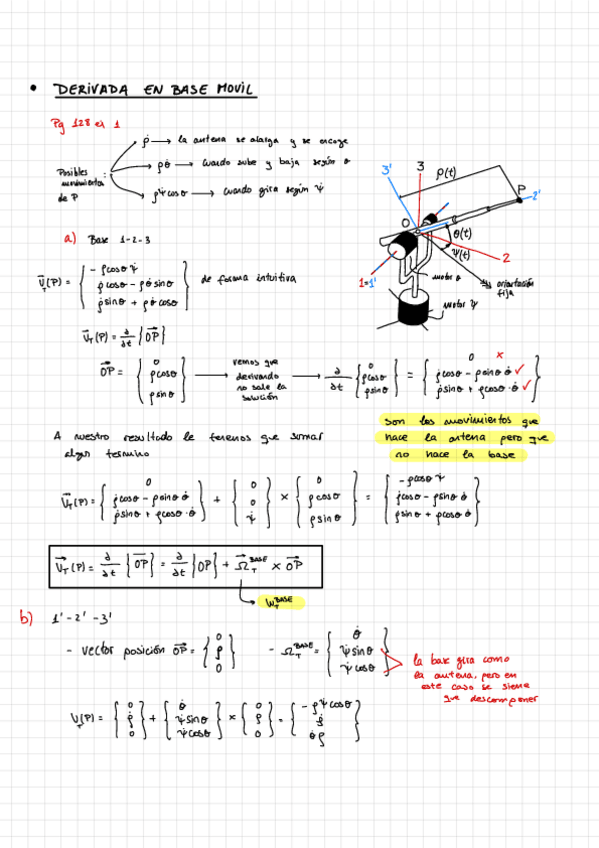 • DERIVADA EN BASE MOVIL
Pg 128 ej 1
Posibles movimientos de P :
ρ̇ → la antena se alarga y se encoge
ρθ̇ → cuando sube y baja según θ
ρΨ̇cosθ → cuando gira según Ψ̇
3'
3
ρ(t)
P
2'
O
θ(t)
Ψ(t)
2
1=1'
motor θ
orientación fija
motor Ψ
a) Base 1-2-3
v̄T(P) = { -ρcosθΨ̇ ; ρ̇cosθ - ρθ̇sinθ ; ρ̇sinθ + ρθ̇cosθ } de forma intuitiva
v̄T(P) = ∂/∂t {OP}
OP = { 0 ; ρcosθ ; ρsinθ } → vemos que derivando no sale la solución → ∂/∂t { 0 ; ρcosθ ; ρsinθ } = { 0 ✗ ; ρ̇cosθ - ρsinθ·θ̇ ✓ ; ρ̇sinθ + ρcosθ·θ̇ ✓ }
son los movimientos que
hace la antena pero que
no hace la base
A nuestro resultado le tenemos que sumar
algun termino
v̄T(P) = { 0 ; ρ̇cosθ - ρsinθ θ̇ ; ρ̇sinθ + ρcosθ·θ̇ } + { 0 ; 0 ; Ψ̇ } × { 0 ; ρcosθ ; ρsinθ } = { -ρcosθΨ̇ ; ρ̇cosθ - ρsinθ θ̇ ; ρ̇sinθ + ρcosθ θ̇ }
v̄T(P) = ∂/∂t {OP} = ∂/∂t {OP} + Ω̄T^BASE × OP
WT^BASE
b) 1'-2'-3'
- vector posición OP = { 0 ; ρ ; 0 } - ΩT^BASE = { θ̇ ; Ψ̇sinθ ; Ψ̇cosθ }
la base gira como
la antena, pero en
este caso se tiene
que descomponer
vT(P) = { 0 ; ρ̇ ; 0 } + { θ̇ ; Ψ̇sinθ ; Ψ̇cosθ } × { 0 ; ρ ; 0 } = { -ρΨ̇cosθ ; ρ̇ ; θ̇ρ }